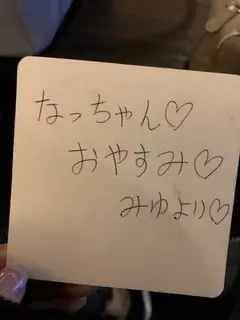 なっちゃん♡
おやすみ♡
みゆより♡